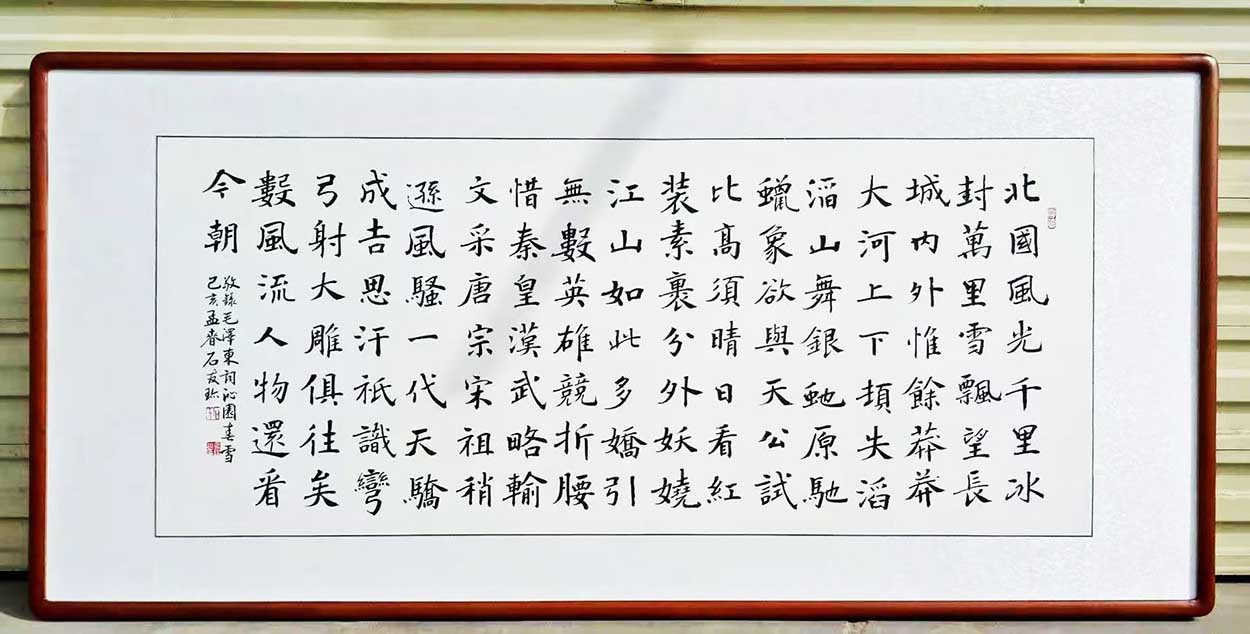 北國風光千里冰
封萬里雪飄望長
城內外惟餘莽莽
大河上下頓失滔
滔山舞銀虵原馳
蠟象欲與天公試
比高須晴日看紅
装素裹分外妖嬈
江山如此多嬌引
無數英雄競折腰
惜秦皇漢武略輸
文采唐宗宋祖稍
遜風騷一代天驕
成吉思汗祇識彎
弓射大雕俱往矣
數風流人物還看
今朝
敬錄毛澤東詞沁園春雪
己亥孟春石友珎